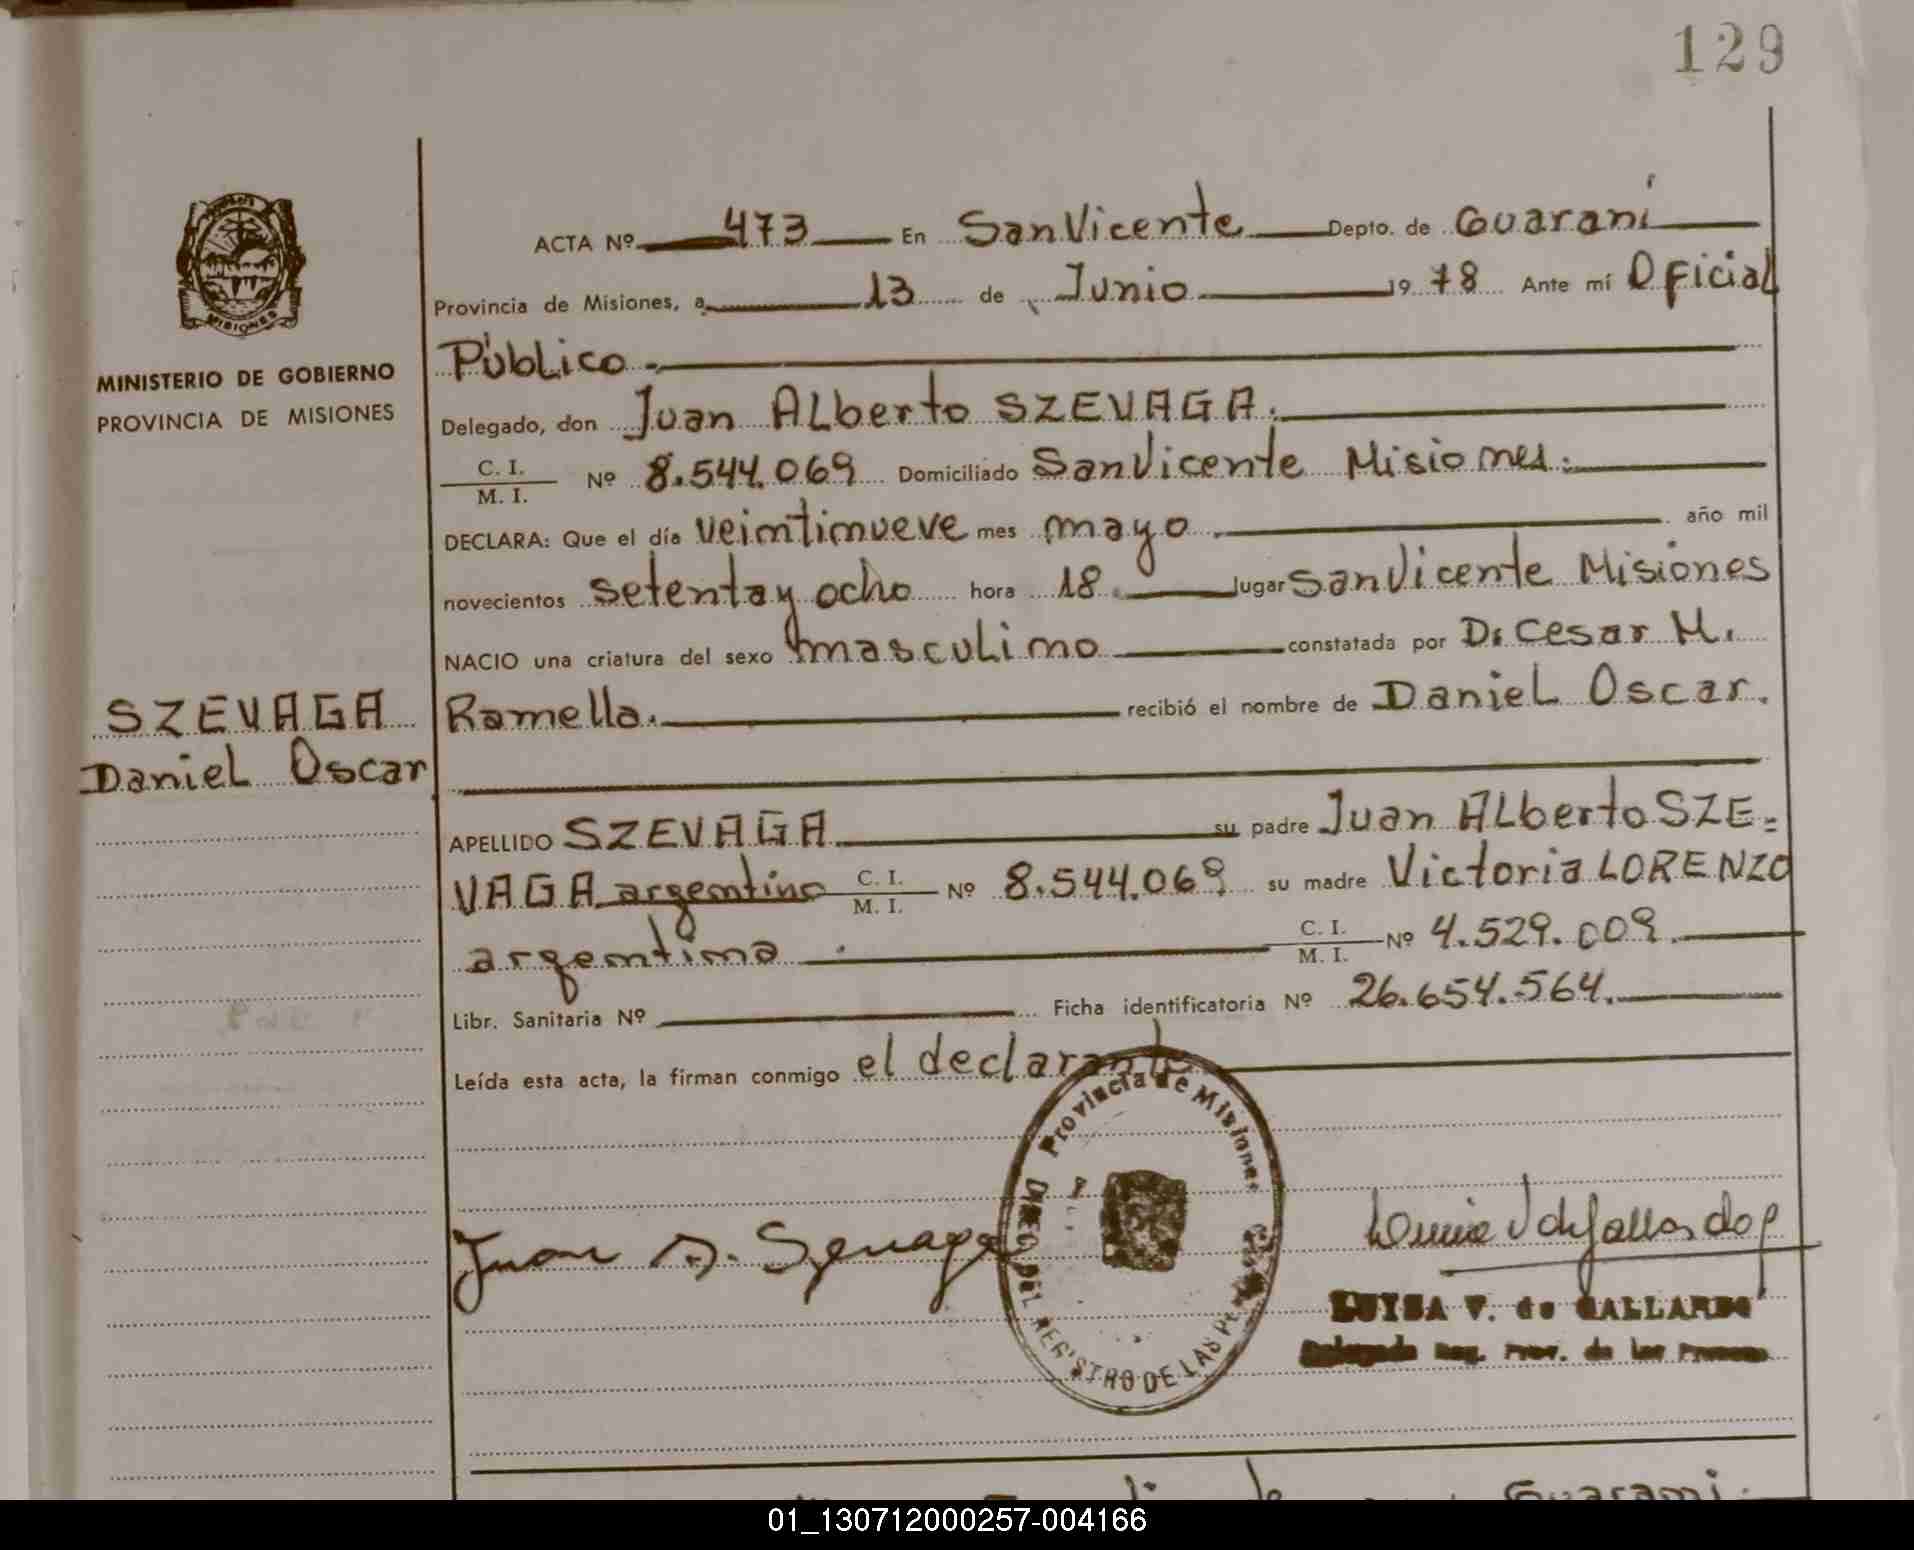 129
MISIONES
MINISTERIO DE GOBIERNO
PROVINCIA DE MISIONES
SZEVAGA
Daniel Oscar
ACTA Nº 473 En San Vicente Depto. de Guaraní
Provincia de Misiones, a 13 de Junio 1978 Ante mí Oficial
Público.
Delegado, don Juan Alberto SZEVAGA.
C. I. / M. I. Nº 8.544.069 Domiciliado San Vicente Misiones.
DECLARA: Que el día veintinueve mes mayo. año mil
novecientos setenta y ocho hora 18. lugar San Vicente Misiones
NACIO una criatura del sexo masculino constatada por Dr Cesar M.
Ramella. recibió el nombre de Daniel Oscar.
APELLIDO SZEVAGA su padre Juan Alberto SZE=
VAGA argentino C. I. / M. I. Nº 8.544.069 su madre Victoria LORENZO
argentina. C. I. / M. I. Nº 4.529.009.
Libr. Sanitaria Nº Ficha identificatoria Nº 26.654.564.
Leída esta acta, la firman conmigo el declarante
Provincia de Misiones
DIREC. DEL REGISTRO DE LAS
Juan A. Szevaga
LUISA V. de GALLARDO
Delegada Reg. Prov. de las Personas
Guaraní.
01_130712000257-004166